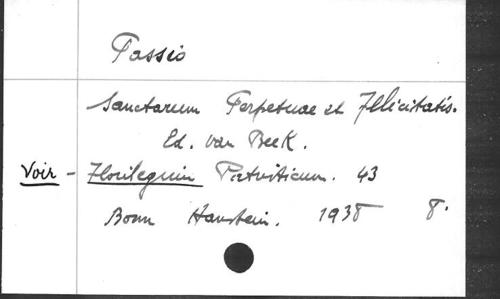 Passio
Sanctarum Perpetuae et Felicitatis.
Ed. van Beek.
Voir - Florilegium Patristicum. 43
Bonn Hanstein. 1938 8°